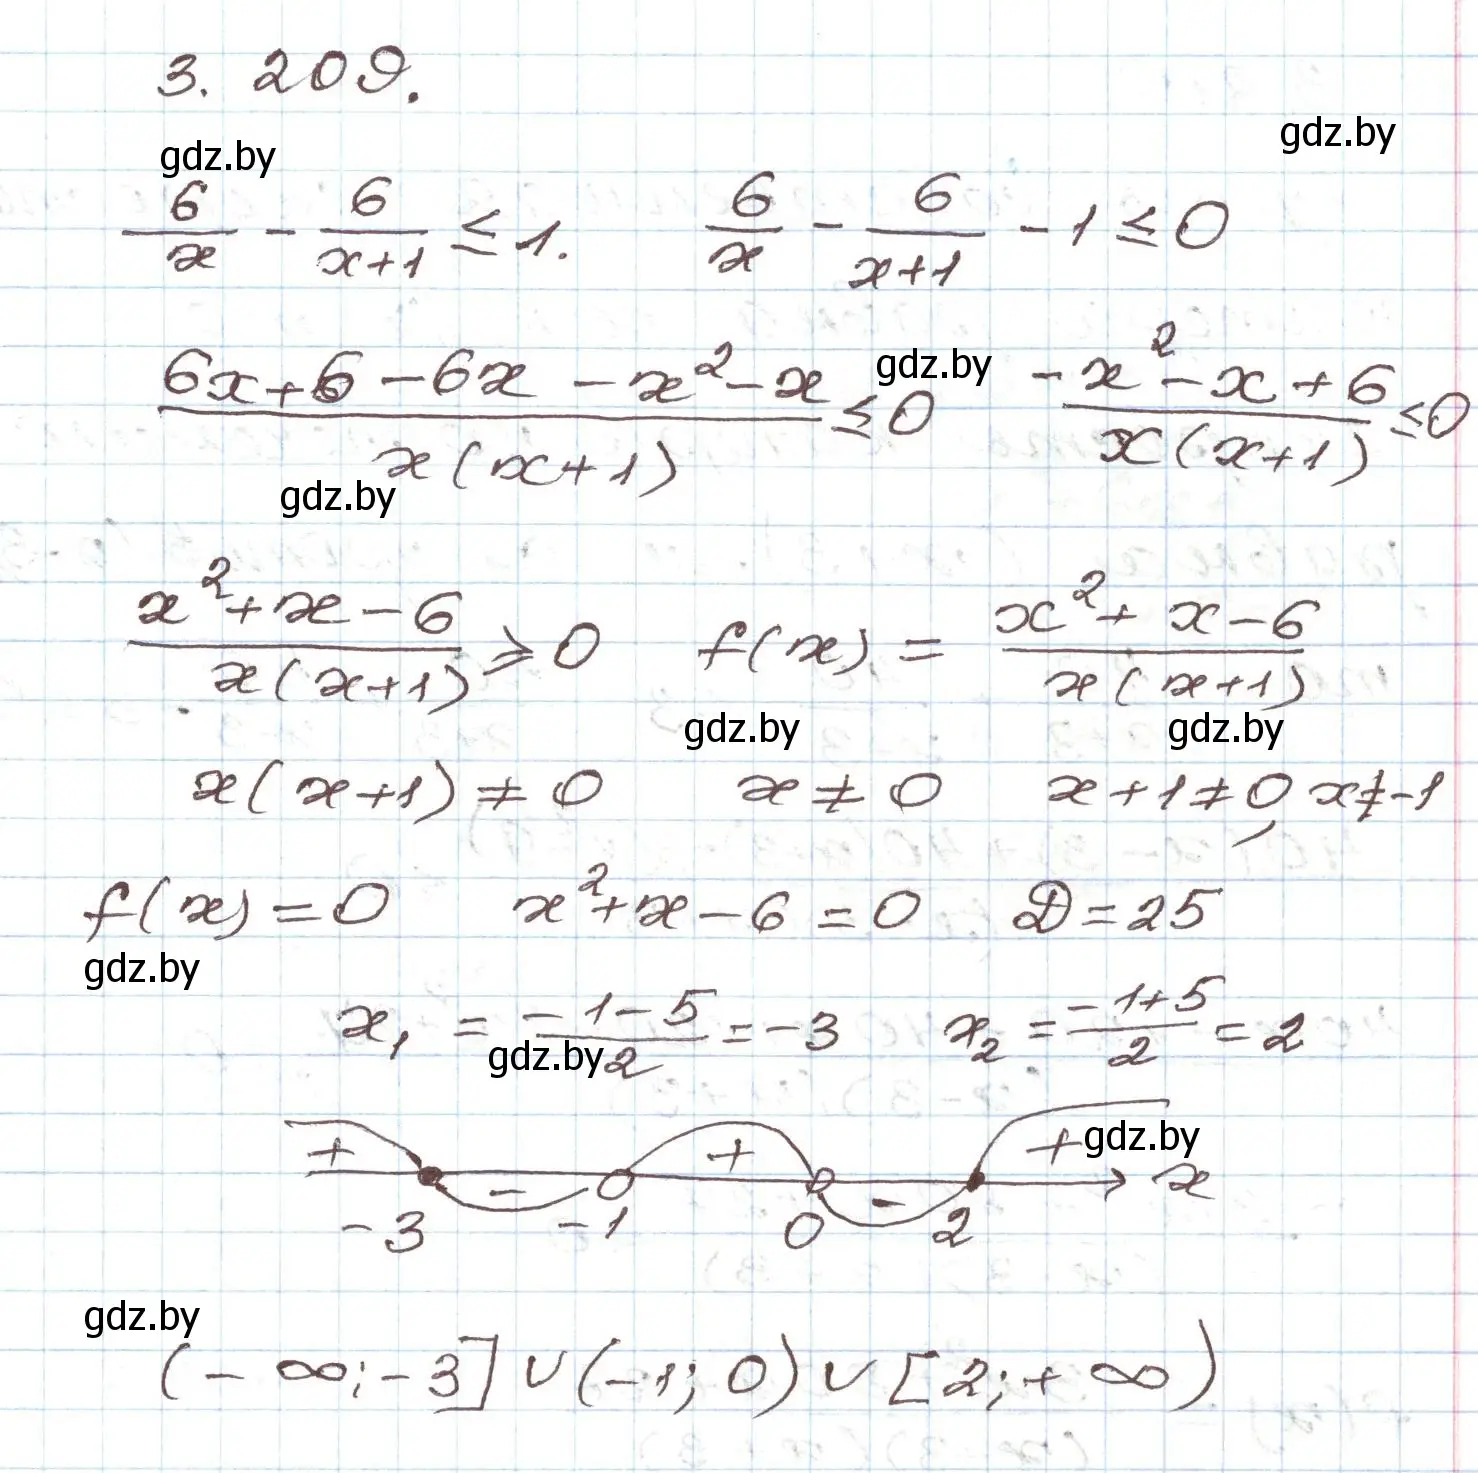 3. 209.
gdz.by gdz.by
6/x - 6/(x+1) ≤ 1. 6/x - 6/(x+1) - 1 ≤ 0
(6x+6-6x-x²-x)/(x(x+1)) ≤ 0 gdz.by (-x²-x+6)/(x(x+1)) ≤ 0
gdz.by
(x²+x-6)/(x(x+1)) ⩾ 0 f(x) = (x²+x-6)/(x(x+1))
gdz.by gdz.by
x(x+1) ≠ 0 x ≠ 0 x+1 ≠ 0, x ≠ -1
f(x) = 0 x²+x-6 = 0 D = 25
gdz.by
x₁ = (-1-5)/2 = -3 x₂ = (-1+5)/2 = 2
gdz.by
+ - + - + gdz.by x
-3 -1 0 2
gdz.by
(-∞; -3] ∪ (-1; 0) ∪ [2; +∞)